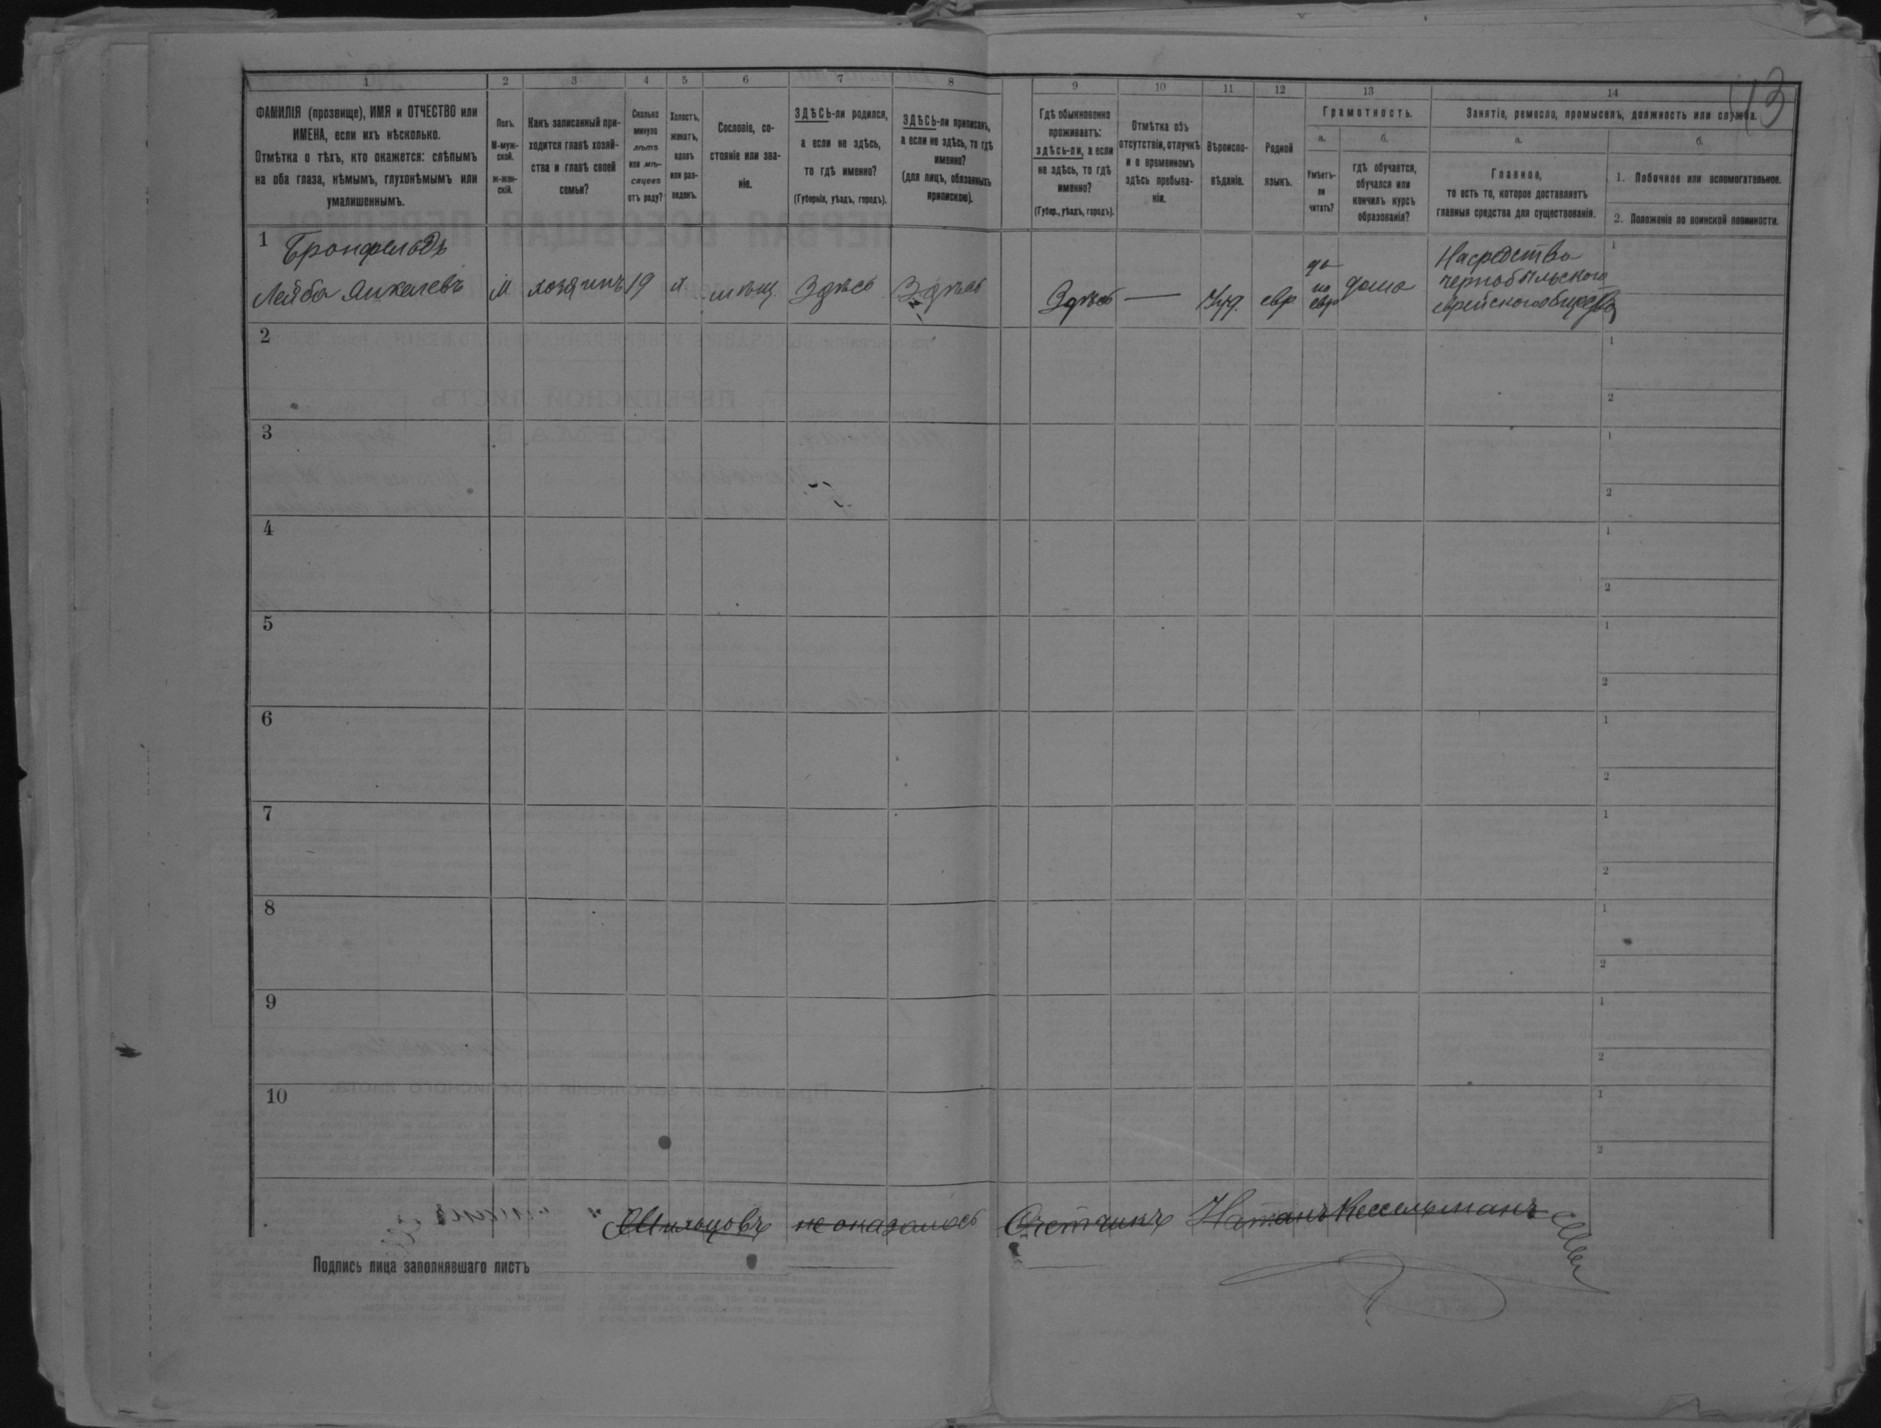 13
1 2 3 4 5 6 7 8 9 10 11 12 13 14
ФАМИЛІЯ (прозвище), ИМЯ и ОТЧЕСТВО или
ИМЕНА, если ихъ нѣсколько.
Отмѣтка о тѣхъ, кто окажется: слѣпымъ
на оба глаза, нѣмымъ, глухонѣмымъ или
умалишеннымъ.
Полъ.
М-муж-
ской.
ж-жен-
скій.
Какъ записанный при-
ходится главѣ хозяй-
ства и главѣ своей
семьи?
Сколько
минуло
лѣтъ
или мѣ-
сяцевъ
отъ роду?
Холостъ,
женатъ,
вдовъ
или раз-
веденъ.
Сословіе, со-
стояніе или зва-
ніе.
ЗДѢСЬ-ли родился,
а если не здѣсь,
то гдѣ именно?
(Губернія, уѣздъ, городъ).
ЗДѢСЬ-ли приписанъ,
а если не здѣсь, то гдѣ
именно?
(для лицъ, обязанныхъ
припискою).
Гдѣ обыкновенно
проживаетъ:
здѣсь-ли, а если
не здѣсь, то гдѣ
именно?
(Губер., уѣздъ, городъ).
Отмѣтка объ
отсутствіи, отлучкѣ
и о временномъ
здѣсь пребыва-
ніи.
Вѣроиспо-
вѣданіе.
Родной
языкъ.
Грамотность.
а.
Умѣетъ-
ли
читать?
б.
гдѣ обучается,
обучался или
кончилъ курсъ
образованія?
Занятіе, ремесло, промыселъ, должность или служба.
а.
Главное,
то есть то, которое доставляетъ
главныя средства для существованія.
б.
1. Побочное или вспомогательное.
2. Положеніе по воинской повинности.
1 Бронфельдъ
Лейба Янкелевъ М хозяинъ 19 х мѣщ. Здѣсь Здѣсь Здѣсь — Іуд. евр
да
по
евр
дома
На средства
чернобыльского
еврейского общества
1
2
1
2
3
1
2
4
1
2
5
1
2
6
1
2
7
1
2
8
1
2
9
1
2
10
1
2
не оказалось Счетчикъ Натанъ Кессельманъ
Подпись лица заполнявшаго листъ